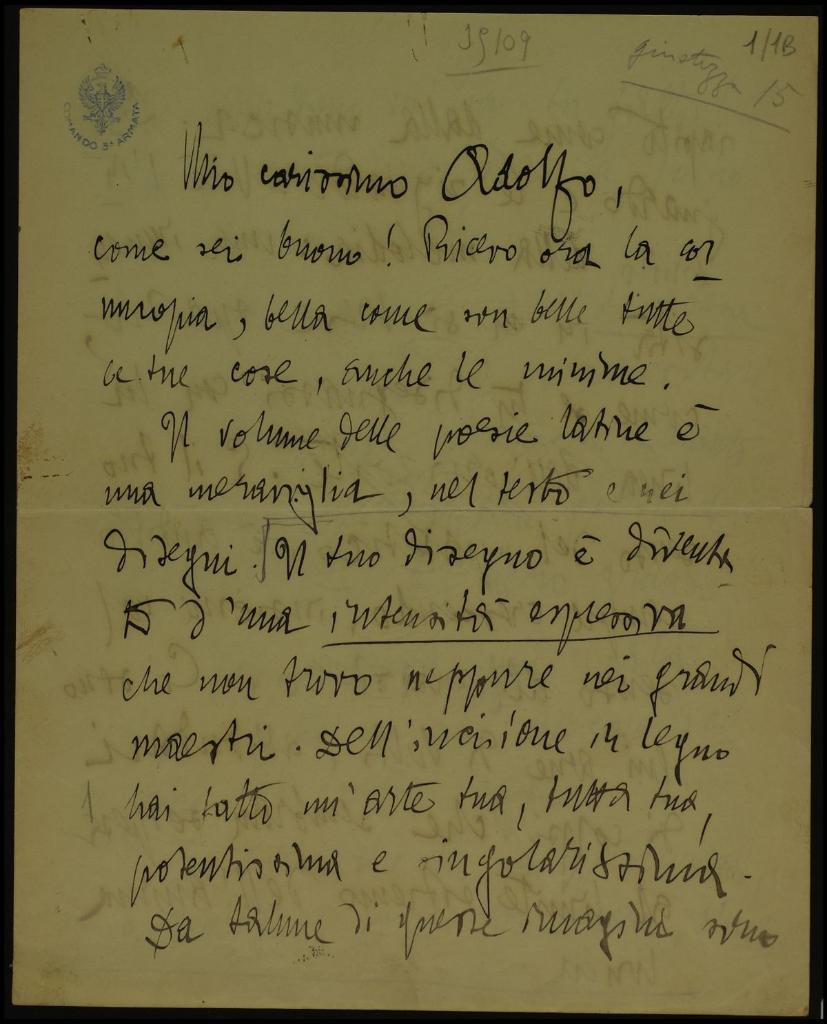 39109
1/1B
giustezza 15
COMANDO 3ª ARMATA
Mio carissimo Adolfo,
come sei buono! Ricevo ora la cor
nucopia, bella come son belle tutte
le tue cose, anche le minime.
Il volume delle poesie latine è
una meraviglia, nel testo e nei
disegni. Il tuo disegno è diventa
to d'una intensità espressiva
che non trovo neppure nei grandi
maestri. Dell'incisione in legno
hai fatto un'arte tua, tutta tua,
potentissima e singolarissima.
Da talune di queste imagini sono